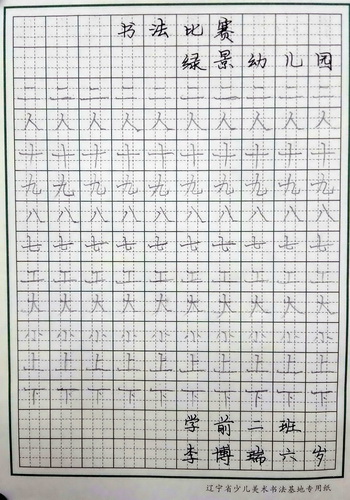 书法比赛
绿景幼儿园
二二二二二二二二二二
人人人人人人人人人人
十十十十十十十十十十
九九九九九九九九九九
八八八八八八八八八八
七七七七七七七七七七
工工工工工工工工工工
大大大大大大大大大大
小小小小小小小小小小
上上上上上上上上上上
下下下下下下下下下下
学前二班
李博瑞六岁
辽宁省少儿美术书法基地专用纸